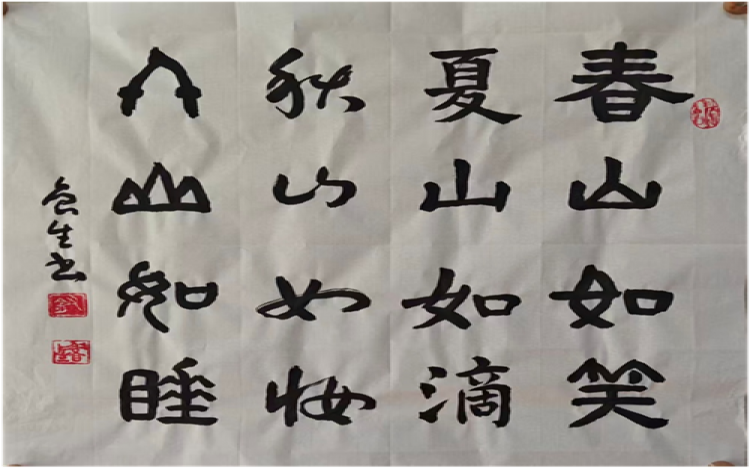 春山如笑
夏山如滴
秋山如妆
冬山如睡
生书